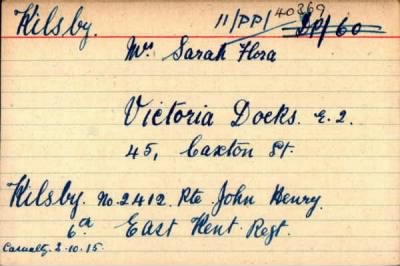 Kilsby. 11/PP/40369 2P/60
Mrs Sarah Flora
Victoria Docks. E.2.
45, Caxton St.
Kilsby. No. 2412. Pte John Henry.
6th East Kent Regt.
Casualty. 2.10.15.